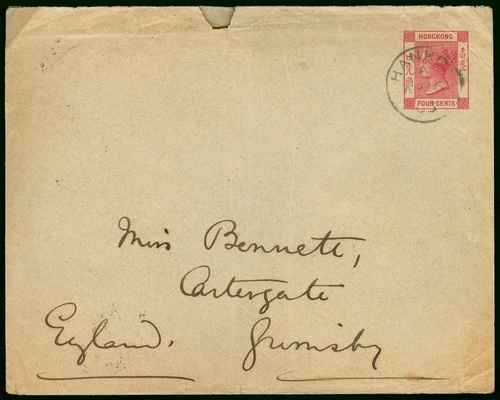 HONGKONG
FOUR CENTS
Miss Bennett,
Cartergate
England. Grimsby